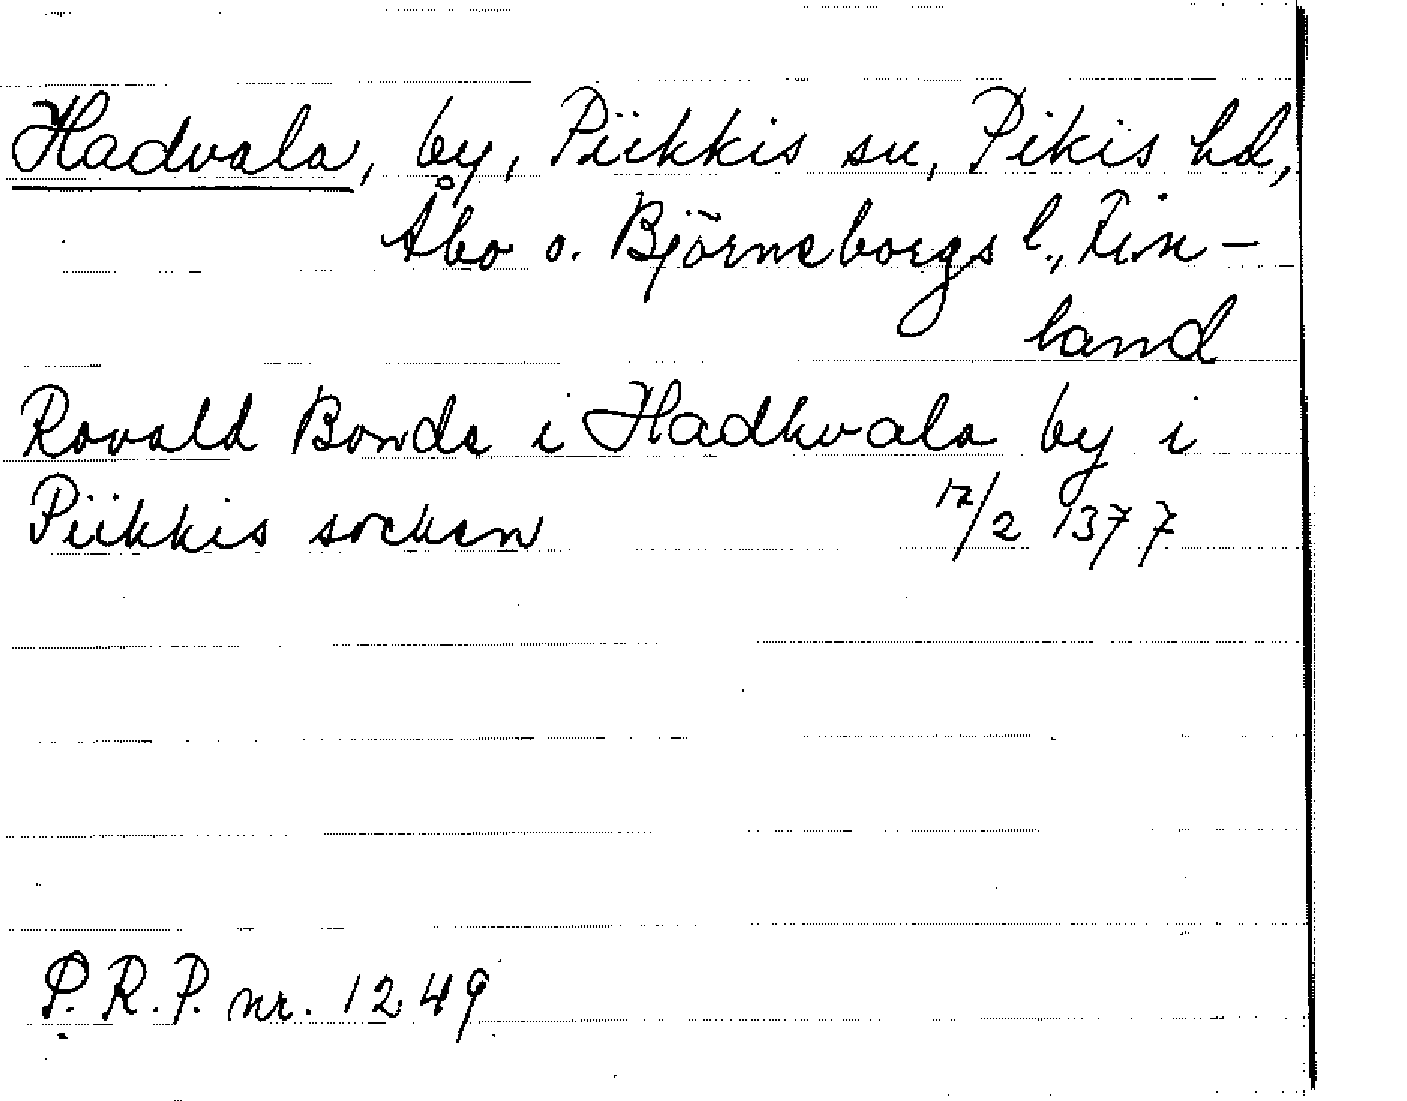 Hadvala, by, Piikkis sn, Pikis hd,
Åbo o. Björneborgs l., Fin-
land
Ravald Bonde i Hadhvala by i
Piikkis socken 17/2 1377
P.R.P. nr. 1249